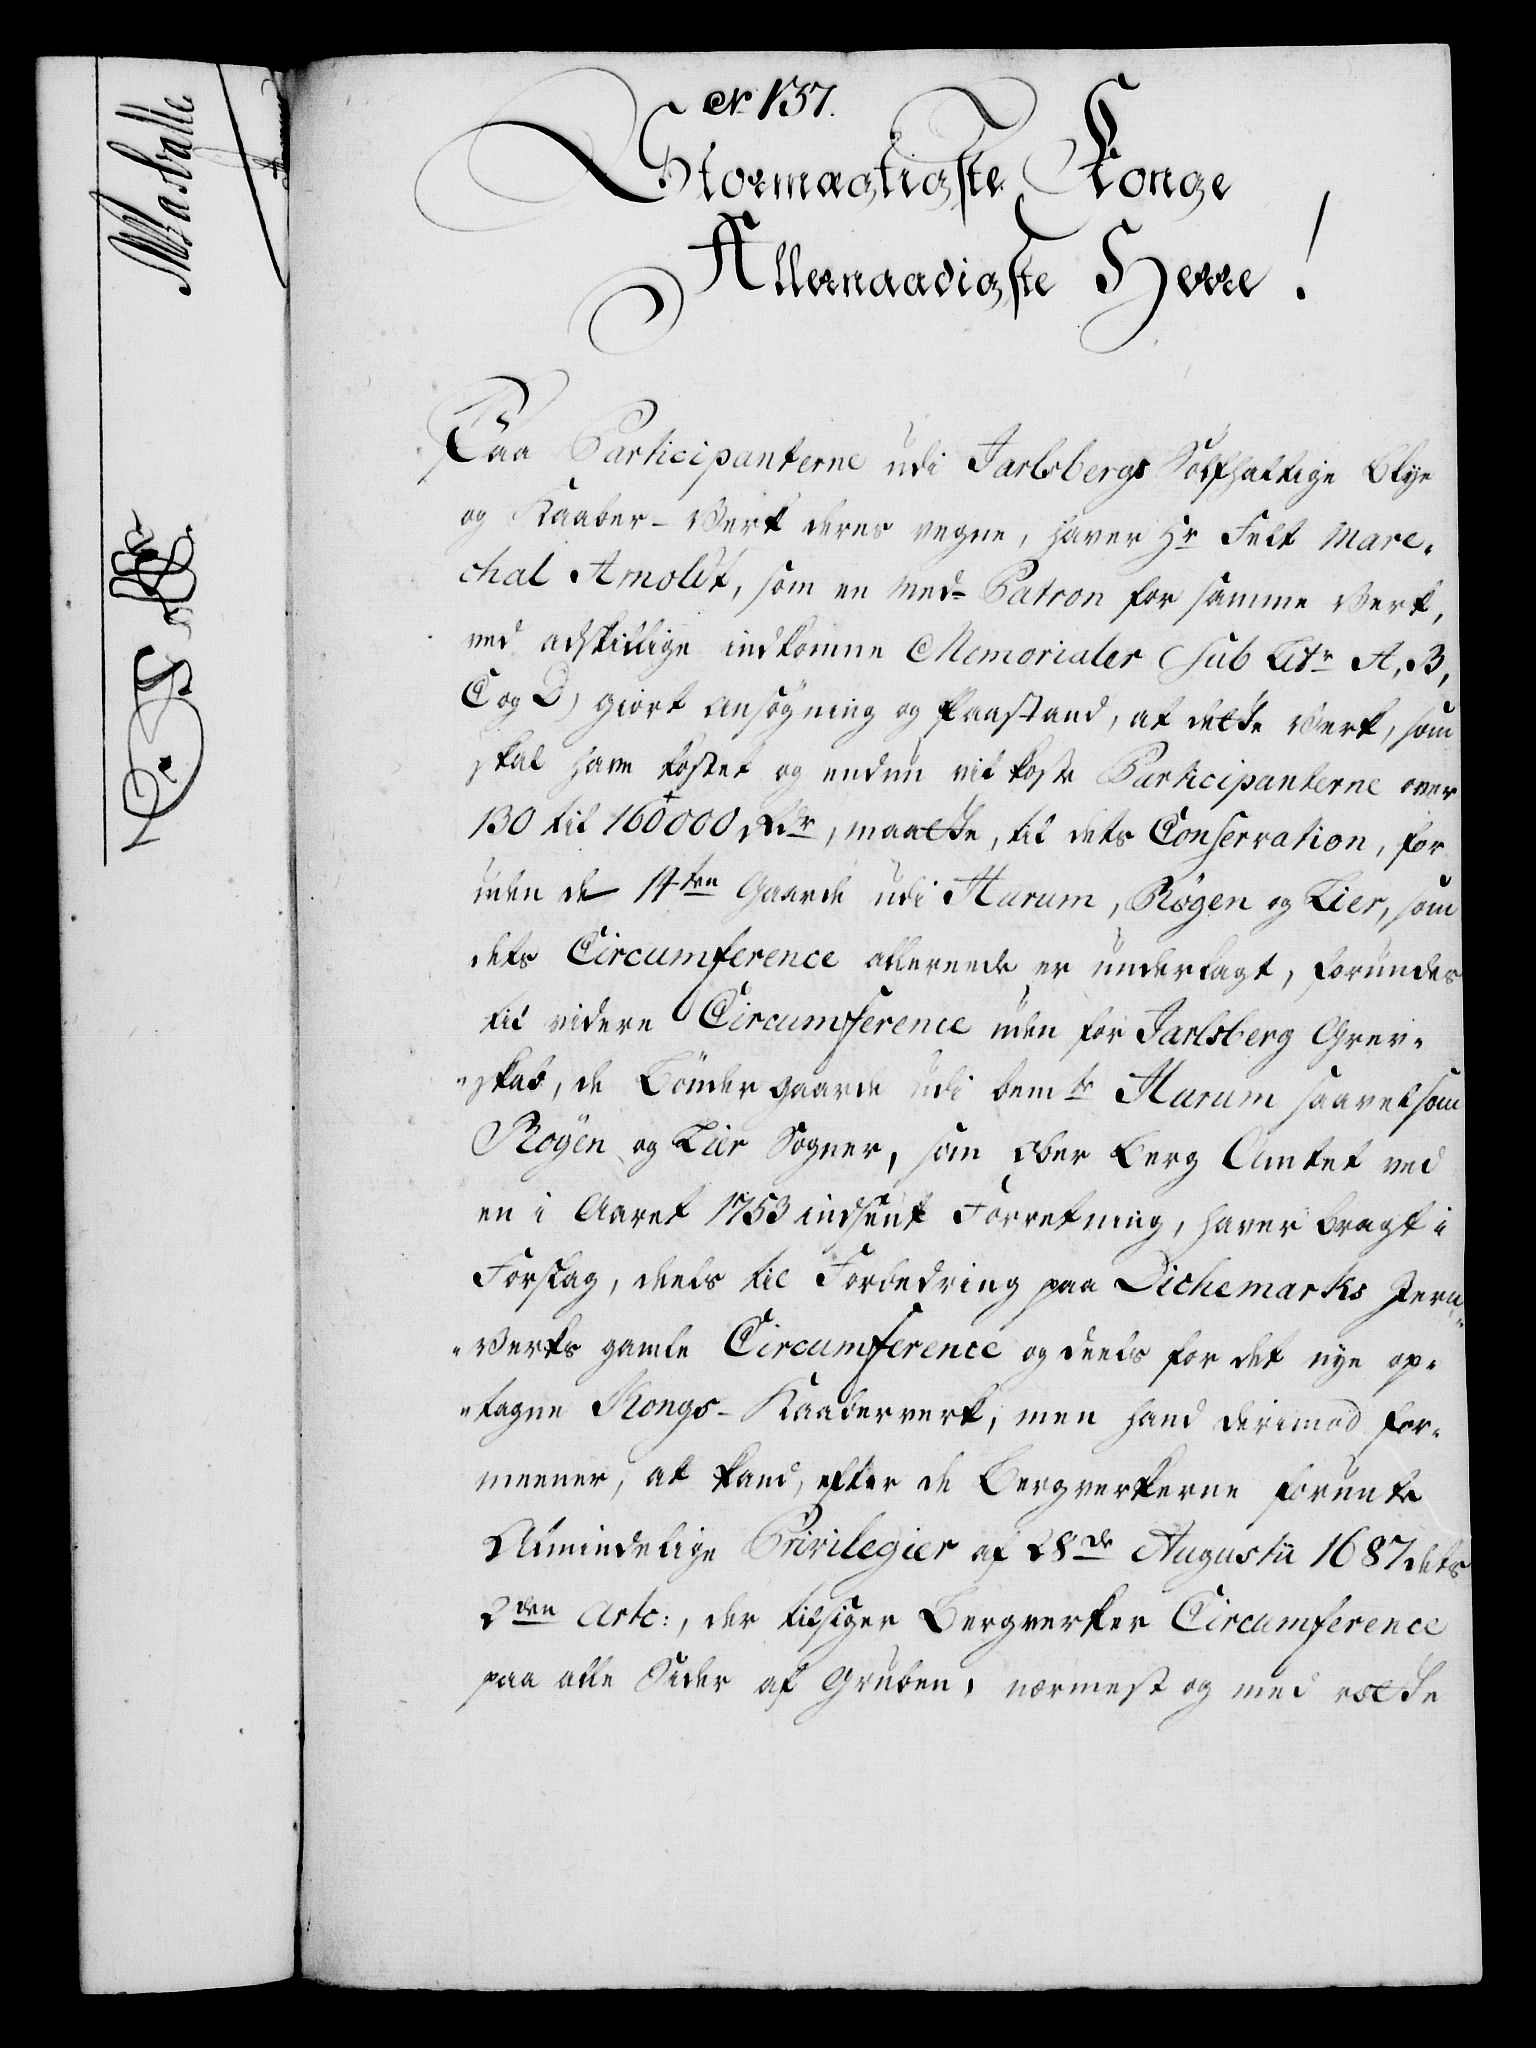 No 157.
Stormægtigste Konge
Allernaadigste Herre!
Paa Participanterne udi Jarlsbergs Sølfhaltige Blye
og Kaaber-Verk deres vegne, haver Hr Felt Mare-
chal Arnoldt, som en Med-Patron for samme Verk,
ved adskillige indkomne Memorialer (sub Litr A, B,
C og D) giort ansøgning og Paastand, at dette Verk, som
skal have kostet og endnu vil koste Participanterne over
130 til 160000 Rdr, maatte, til dets Conservation, for
uden de 14ten Gaarde udi Hurum, Røgen og Lier, som
dets Circumference allerede er underlagt, forundes
til videre Circumference uden for Jarlsberg Grev-
"skab, de Bønder Gaarde udi bemte Hurum saavelsom
Røgen og Lier Sogner, som Ober Berg Amtet ved
en i Aaret 1753 indsendt Forretning, haver bragt i
Forslag, deels til Forbedring paa Dichemarks Jern-
"Verks gamle Circumference og deels for det nye op-
"tagne Kongs-Kaaberverk, men hand derimod for-
meener, at kand, efter de Bergverkerne forundte
Almindelige Privilegier af 28de Augustii 1687 dets
2den Artc:, der tilsiger Bergverker Circumference
paa alle Sider af Gruben, nærmest og med rætte